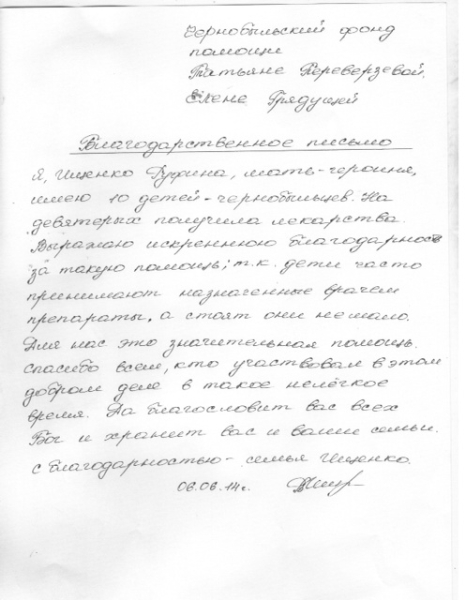 Чернобыльский фонд
помощи
Татьяне Переверзевой.
Елене Грядущей
Благодарственное письмо
Я, Ищенко Руфина, мать-героиня,
имею 10 детей-чернобыльцев. На
девятерых получила лекарства.
Выражаю искреннюю благодарность
за такую помощь; т.к. дети часто
принимают назначенные врачем
препараты, а стоят они немало.
Для нас это значительная помощь.
спасибо всем, кто участвовал в этом
добром деле в такое нелёгкое
время. Да благословит вас всех
Бог и хранит вас и ваши семьи.
с благодарностью - семья Ищенко.
06.06.14г.